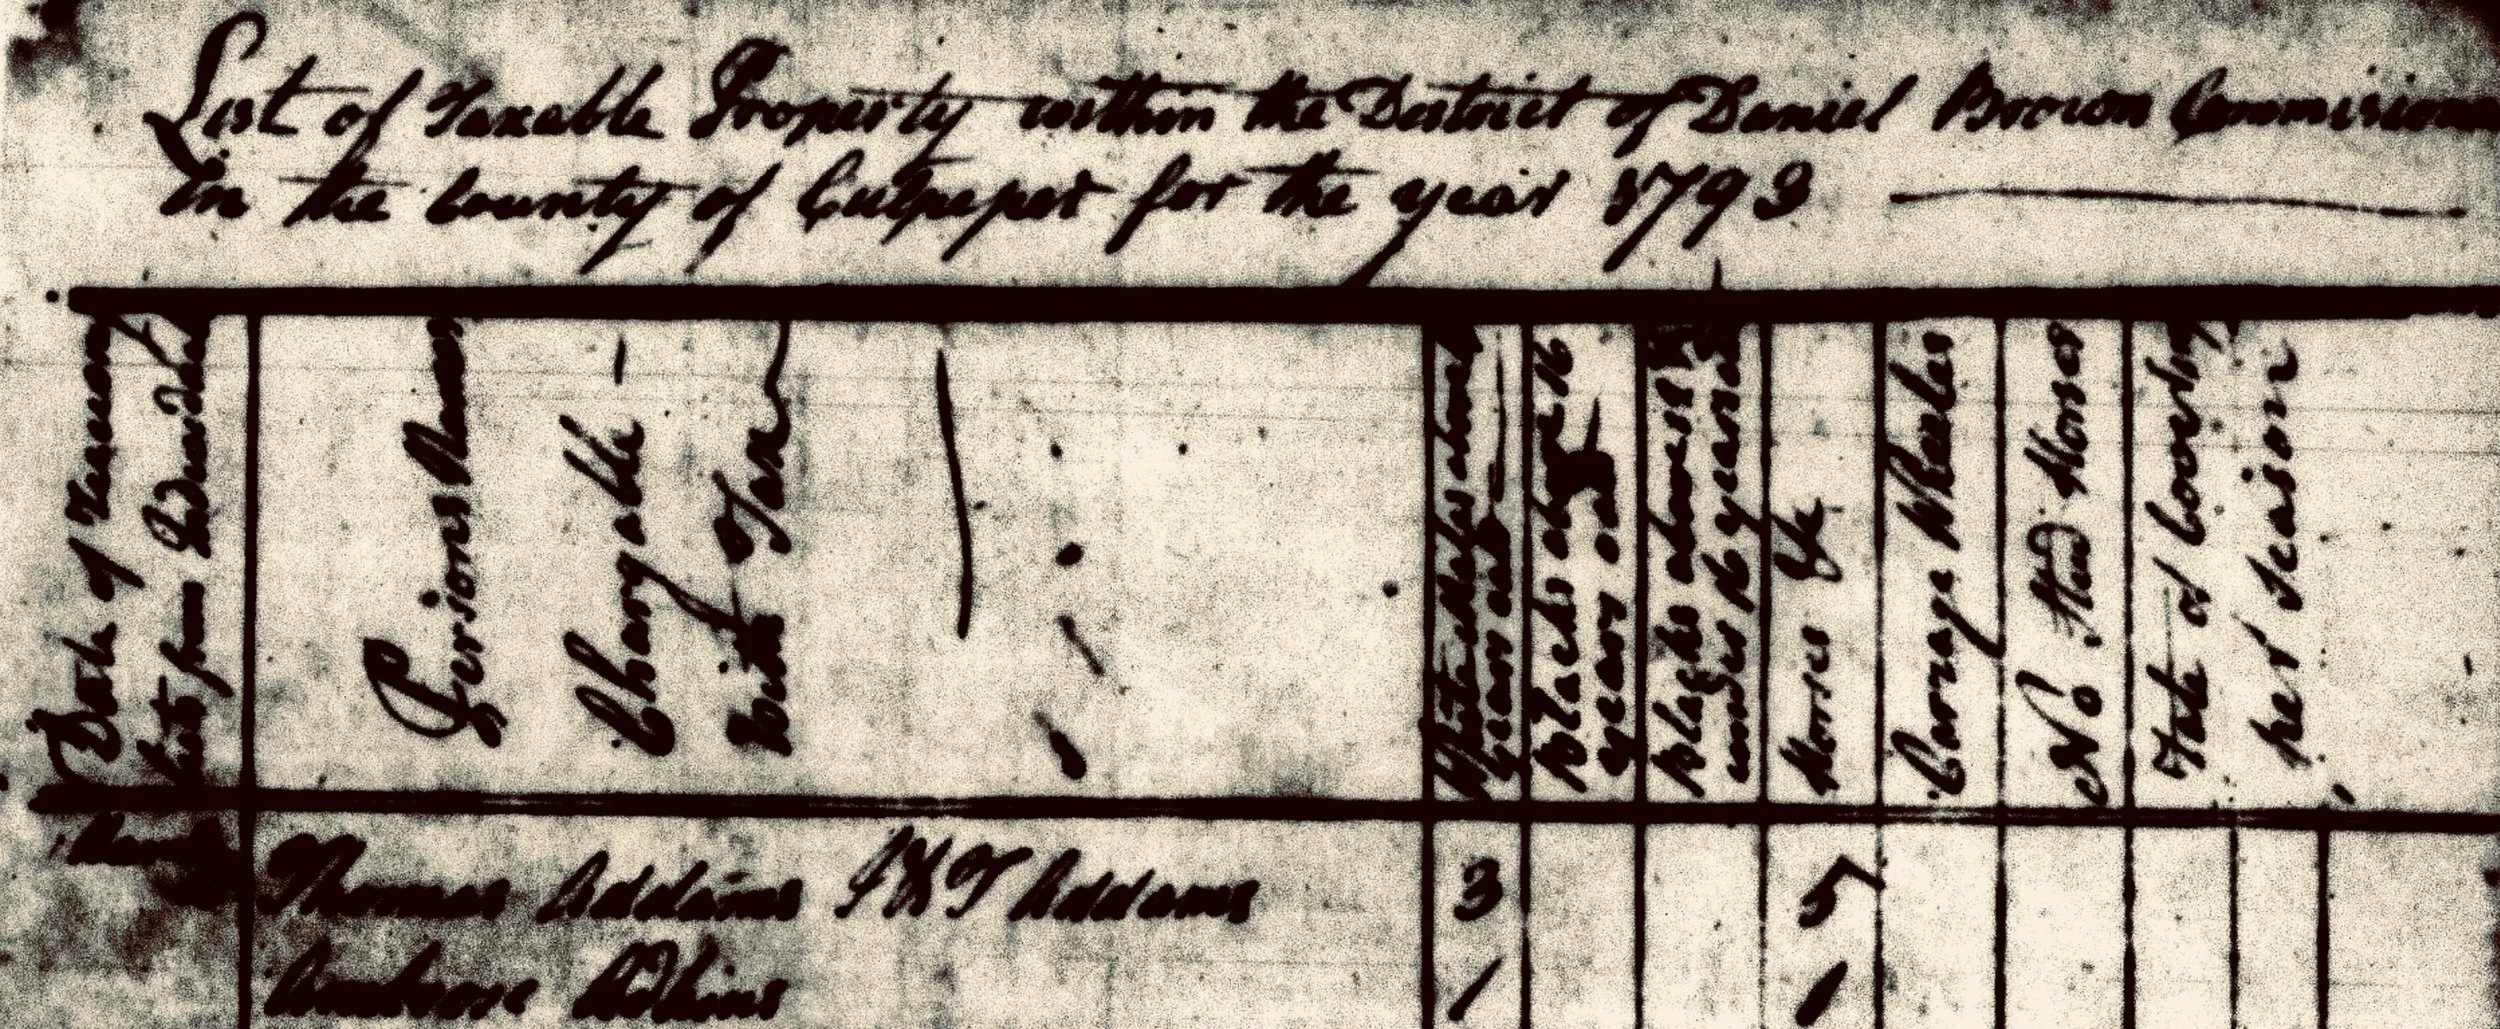 List of Taxable Property within the District of Daniel Brown Commisioner
in the County of Culpeper for the year 1793
Date of receiving
lists from Individuals
Persons Names
Chargeable
with Tax
White Males above
years old
Blacks above 16
years old
Blacks above 12 &
under 16 years
Horses &c
Carrage Wheeles
No. Stud Horses
Rate of Covering
per Season
Thomas Addams J & T Addams 3 5
Ambrose Adkins 1 1